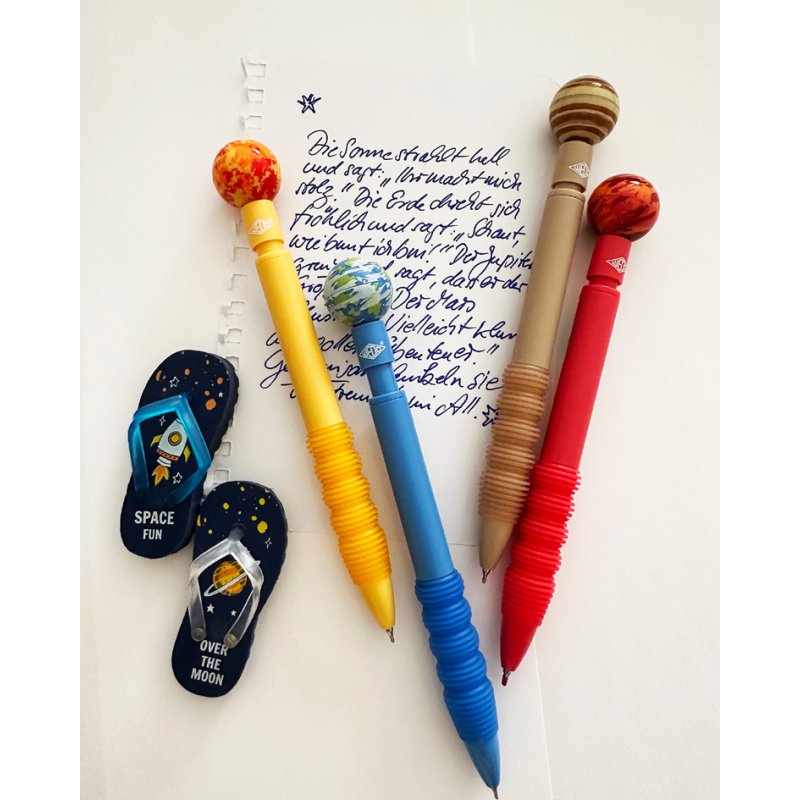 Die Sonne strahlt hell
und sagt: „Ihr macht mich
stolz." Die Erde dreht sich
fröhlich und sagt: „Schaut,
wie bunt ich bin!" Der Jupiter
sagt, dass er der
Der Mars
Vielleicht
Abenteuer."
sie
im All.
WEDO
WEDO
WEDO
WEDO
SPACE
FUN
OVER
THE
MOON